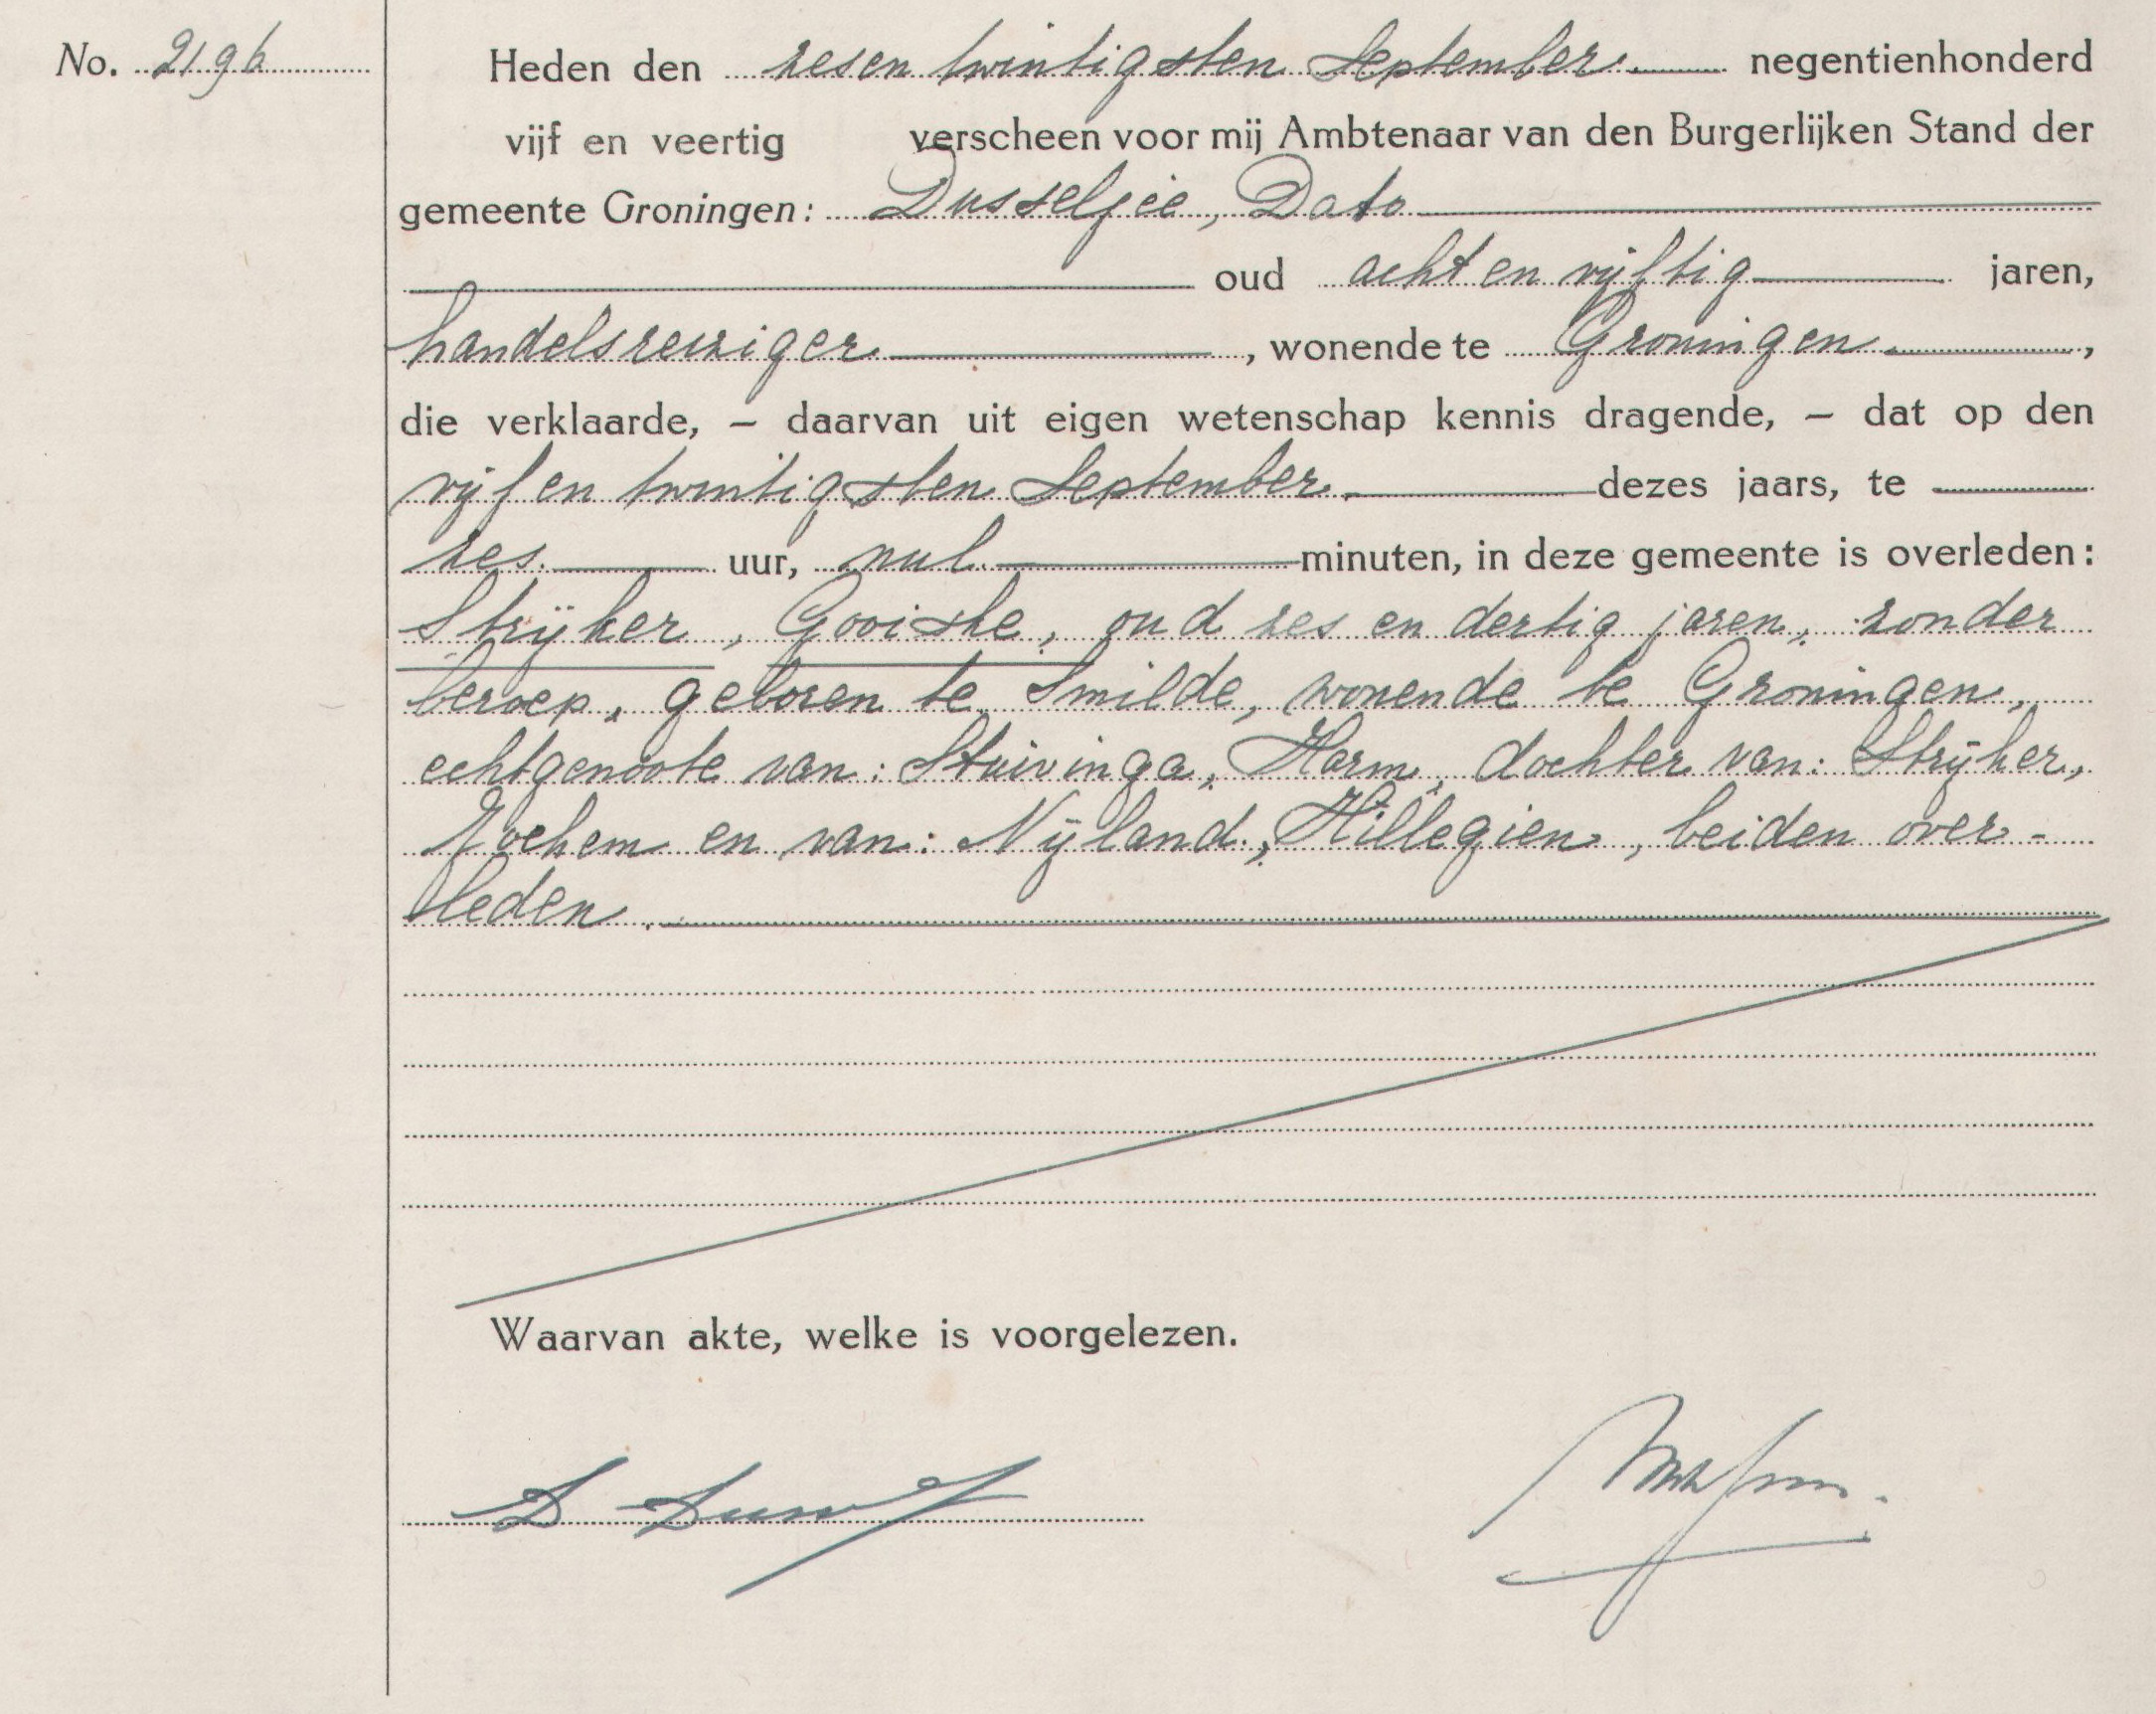 No. 2196
Heden den zesen twintigsten September negentienhonderd
vijf en veertig verscheen voor mij Ambtenaar van den Burgerlijken Stand der
gemeente Groningen: Dusseljee, Dato
oud acht en vijftig jaren,
handelsreiziger, wonende te Groningen,
die verklaarde, – daarvan uit eigen wetenschap kennis dragende, – dat op den
vijf en twintigsten September dezes jaars, te
zes uur, nul minuten, in deze gemeente is overleden:
Strijker, Gooiske, oud zes en dertig jaren, zonder
beroep, geboren te Smilde, wonende te Groningen,
echtgenoote van: Stuivinga, Harm, dochter van: Strijker,
Jochem en van: Nijland, Hillegien, beiden over-
leden.
Waarvan akte, welke is voorgelezen.